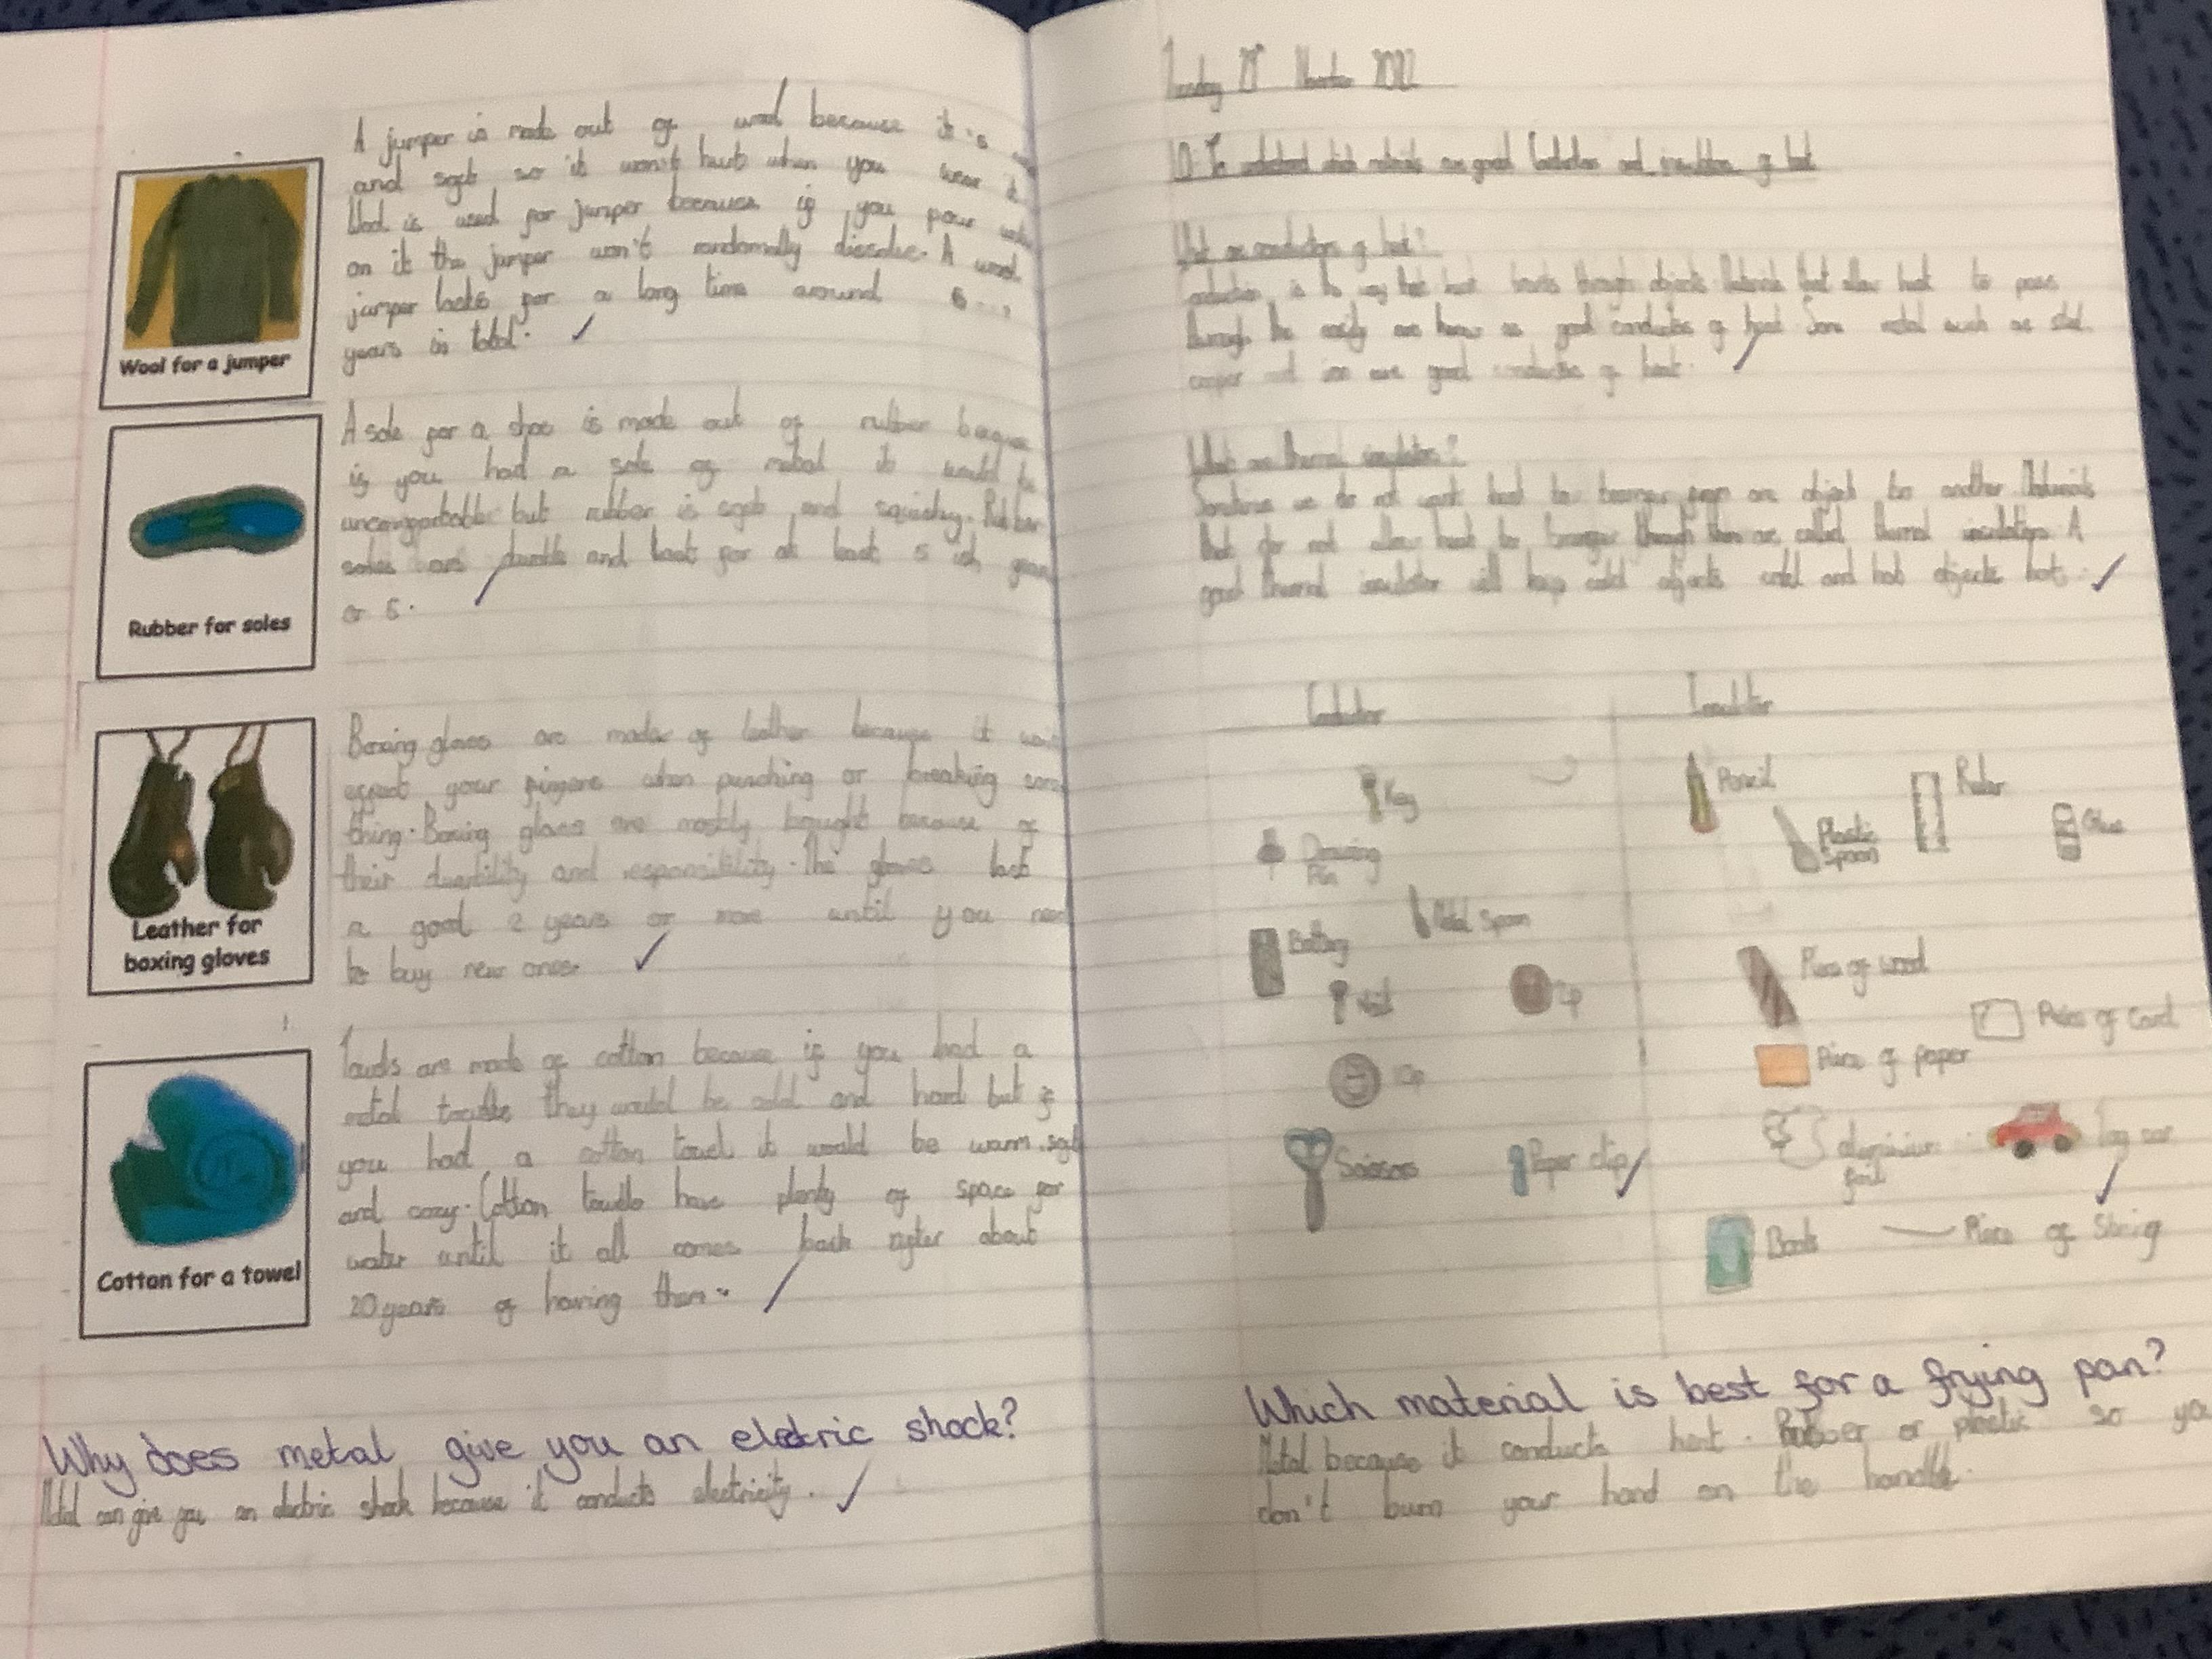 A jumper is made out of wool because it's
and soft so it won't hurt when you wear it
Wool is used for jumper because if you pour
on it the jumper won't randomally dissolve. A wool
jumper lasts for a long time around 6
years in total.
Wool for a jumper
A sole for a shoe is made out of rubber because
if you had a sole of metal it would be
uncomfortable but rubber is soft and squishy. Rubber
soles are durable and last for at least 5 ish years
or 6.
Rubber for soles
Boxing gloves are made of leather because it won't
effect your fingers when punching or breaking some
thing. Boxing gloves are mostly bought because of
their durability and responsibility. The gloves last
a good 2 years or more until you need
to buy new ones.
Leather for
boxing gloves
Towels are made of cotton because if you had a
metal towels they would be cold and hard but if
you had a cotton towel it would be warm, soft
and cozy. Cotton towels have plenty of space for
water until it all comes back after about
20 years of having them.
Cotton for a towel
Why does metal give you an electric shock?
Metal can give you an electric shock because it conducts electricity.
Tuesday 2022
LO: To understand which materials are good Conductors and insulators of heat
What are conductors of heat?
conduction is the way that heat travels through objects Materials that allow heat to pass
through the easily are known as good conductors of heat Some metal such as steel.
cooper and iron are good conductors of heat.
What are thermal insulators?
Sometimes we do not want heat to transfer from one object to another Materials
that do not allow heat to transfer through them are called thermal insulators A
good thermal insulator will keep cold objects cold and hot objects hot.
Conductor
Insulator
Key
Drawing
Pin
Metal Spoon
Battery
Nail
2p
10p
Scissors
Paper clip
Pencil
Ruler
Plastic
Spoon
Glue
Piece of wood
Piece of Card
Piece of paper
aluminium
foil
Toy car
Book
Piece of String
Which material is best for a frying pan?
Metal because it conducts heat. Rubber or plastic so you
don't burn your hand on the handle.